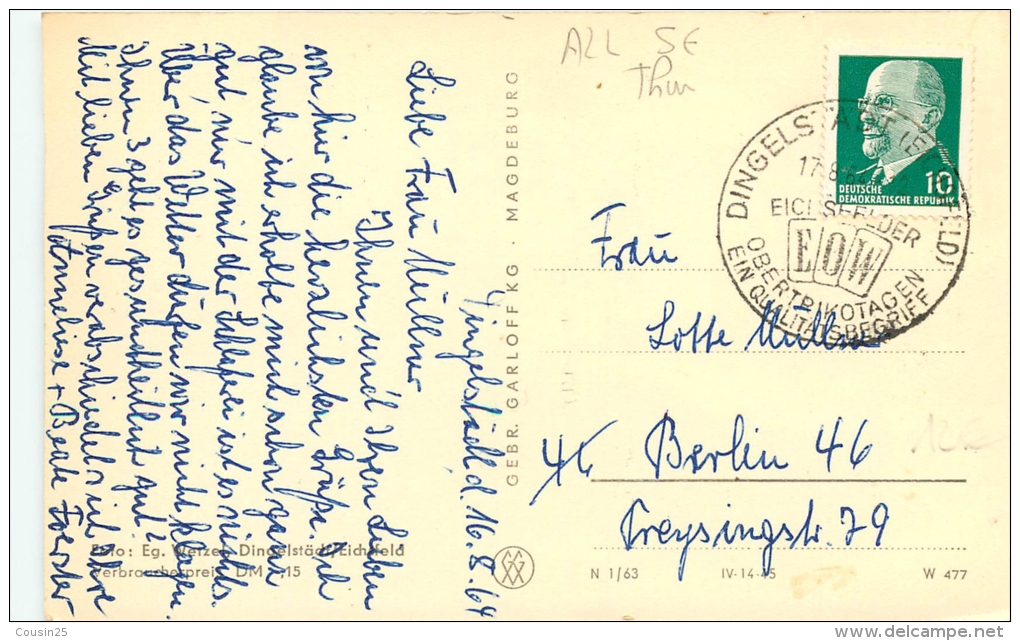 Dingelstädt d. 16.8.64
Liebe Frau Müllner
Ihnen und Ihren Lieben
von hier die herzlichsten Grüße. Ich
glaube ich erhole mich schon ganz
gut nur mit der Schlaferei ist es nichts.
Über das Wetter dürfen wir nicht klagen.
Ihnen 3 geht es gesundheitlich gut?
Mit lieben Grüßen verabschieden sich Ihre
Anneliese + Beate Foerster
Foto: Eg. Wetzel, Dingelstädt/Eichsfeld
Verbraucherpreis DM 0,15
GEBR. GARLOFF KG · MAGDEBURG
A2L 5E
Thür
DEUTSCHE
DEMOKRATISCHE REPUBLIK
10
DINGELSTÄDT (EICHSFELD)
17.8.64
EICHSFELDER
EOW
OBERTRIKOTAGEN
EIN QUALITÄTSBEGRIFF
Frau
Lotte Müllner
46 Berlin 46
Freysingstr. 79
N 1/63 IV-14-45 W 477
Cousin25
http://www.delcampe.net